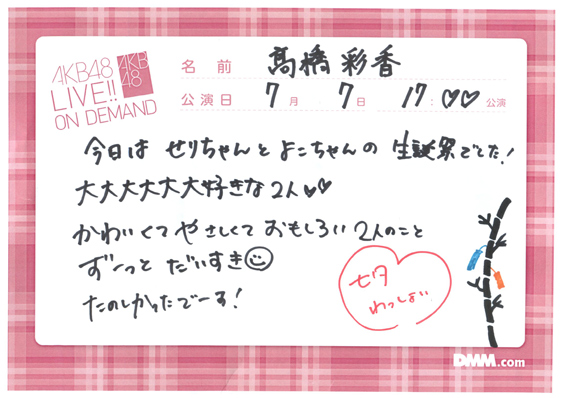 AKB48
LIVE!!
ON DEMAND
AKB
48
名前 高橋彩香
公演日 7月 7日 17:♡♡公演
今日は せりちゃんとよこちゃんの 生誕祭でした!
大大大大大大好きな2人♡♡
かわいくてやさしくておもしろい2人のこと
ずーっと だいすき☺
たのしかったでーす!
七夕
わっしょい
DMM.com